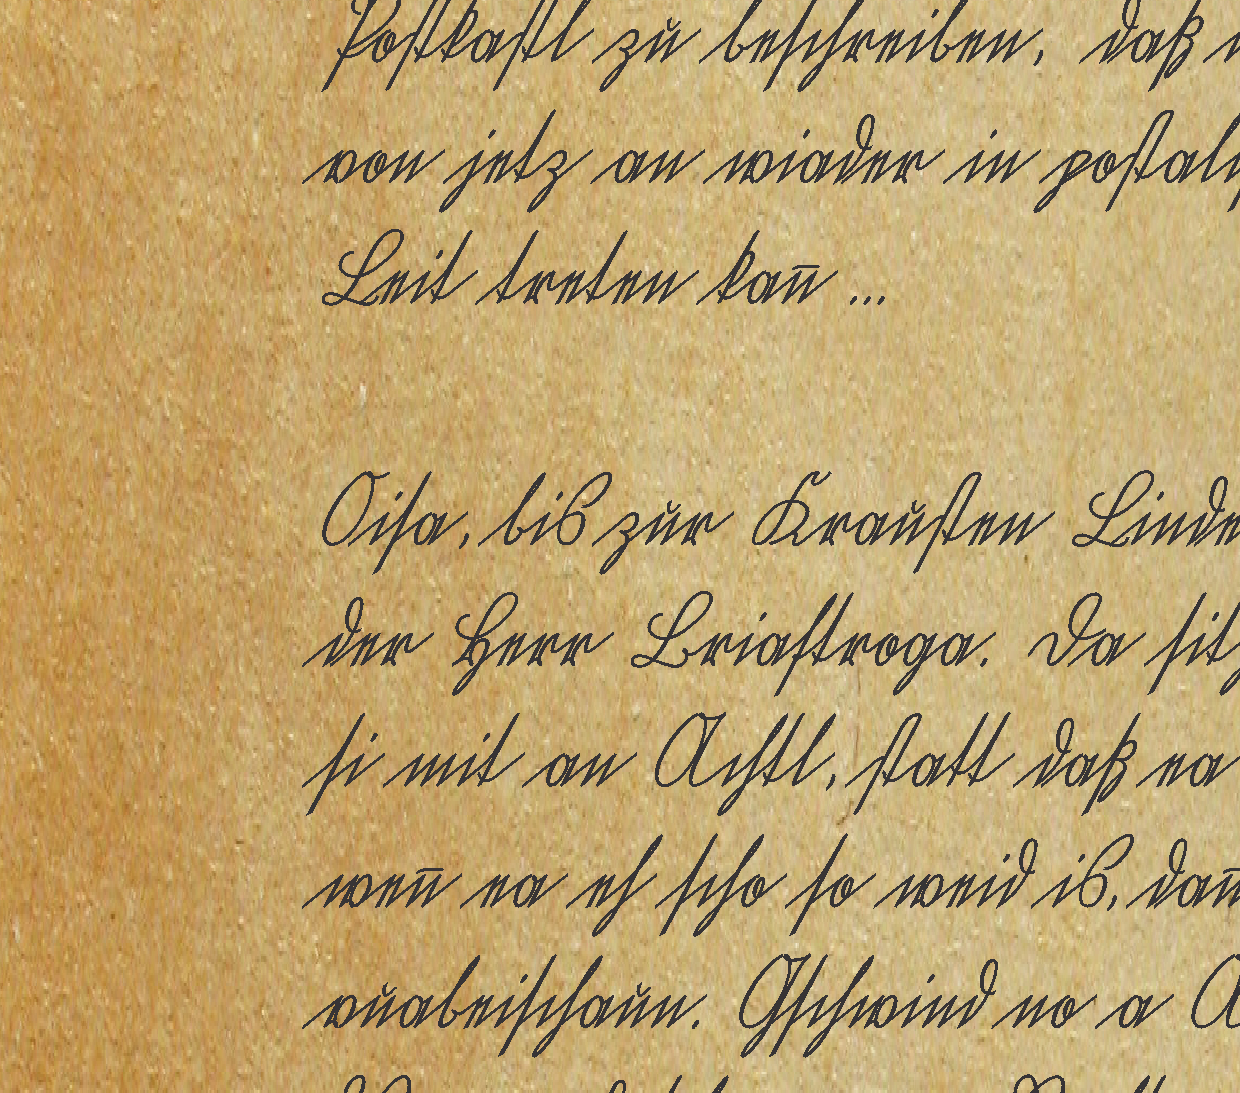 Postkastl zu beschreiben, daß
von jetz an wiader in postal
Leit treten kan̄ ...
Oisa, bis zur Kraußten Linde
der Herr Briaftroga. Da sitz
si mit an Achtl, statt daß ea
wen̄ ea eh scho so weid is, dan̄
vuabeischaun. Gschwind no a A